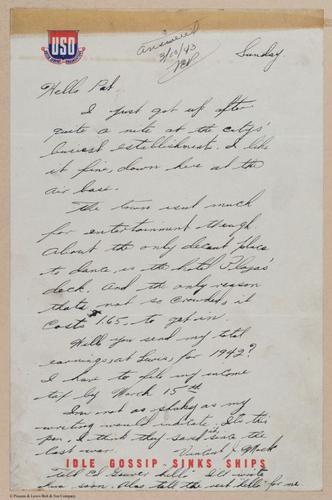 USO
answered
3/10/43
Sunday.
Hello Pat.
I just got up after
quite a nite at the citys'
busiest establishment. I like
it fine down here at the
air base.
The town isnt much
for entertainment though.
About the only decent place
to dance, is the hotel Plaza's
deck. And the only reason
thats not so crowded, it
costs $1.65, to get in.
Will you send my total
earnings, at Lewis, for 1942?
I have to file my income
tax by March 15th
I'm not as shakey as my
writing would indicate. Its this
pen. I think they said since the
last war. Vincent J.
IDLE GOSSIP - SINKS SHIPS
Tell I'll write
him soon. Also tell the rest hello for me
© Pinsent & Lewis Bolt & Nut Company